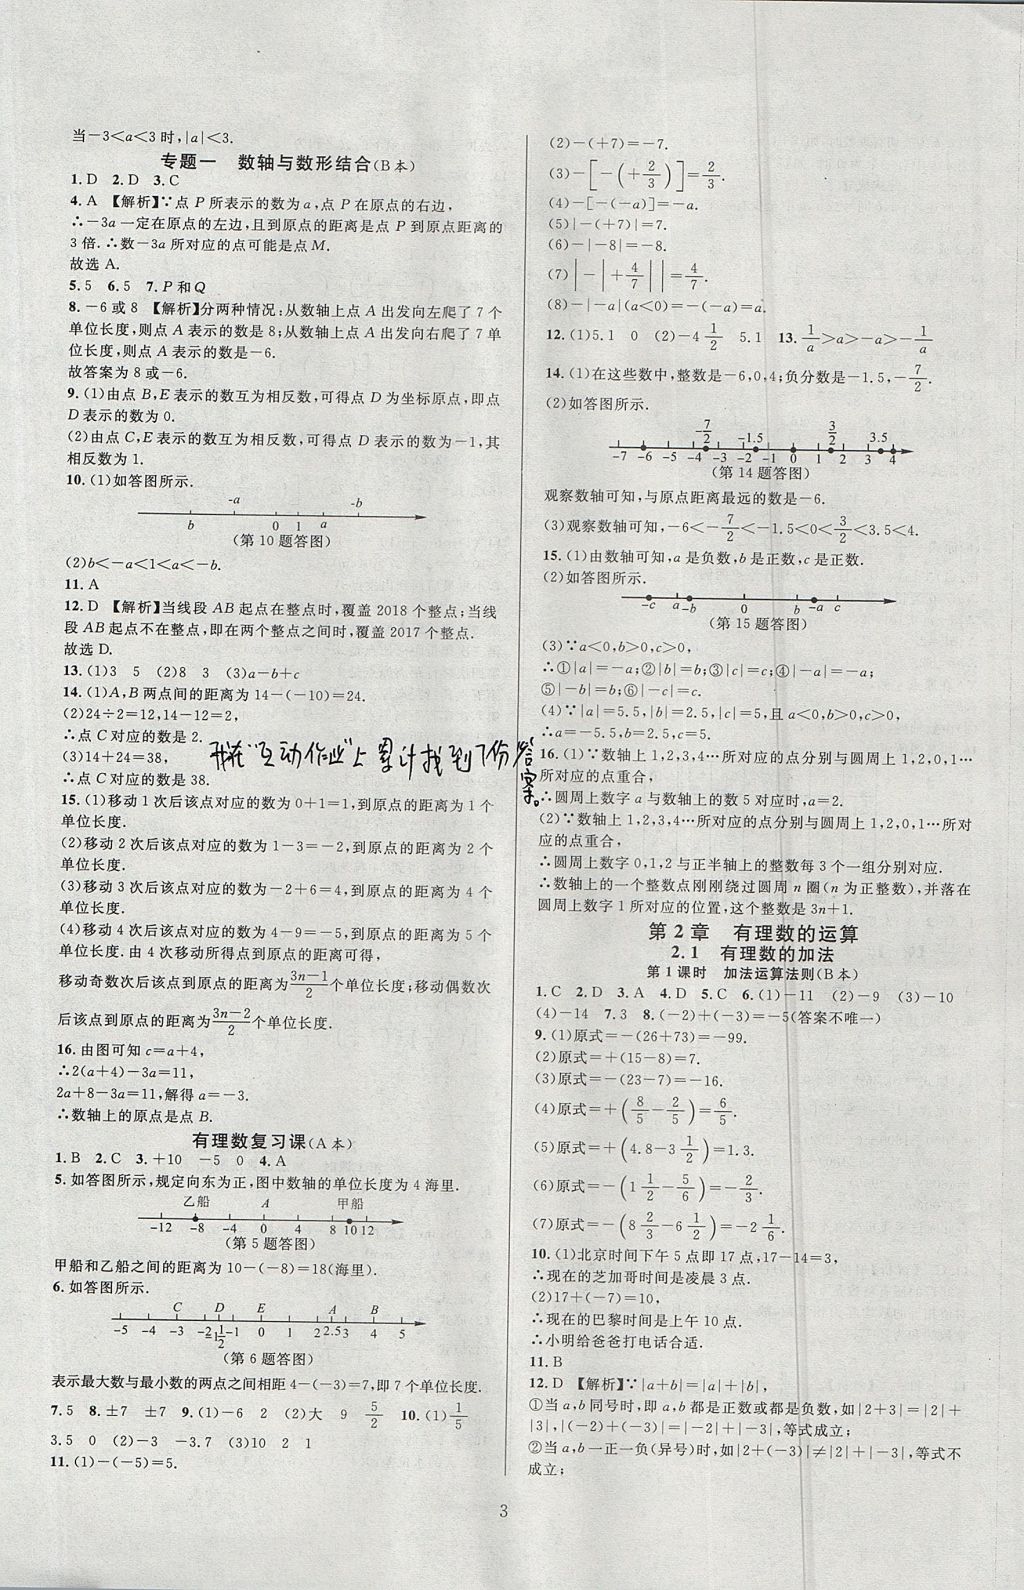 当-3<a<3时,|a|<3.
专题一 数轴与数形结合(B本)
1.D 2.D 3.C
4.A 【解析】∵点P所表示的数为a,点P在原点的右边,
∴-3a一定在原点的左边,且到原点的距离是点P到原点距离的
3倍.∴数-3a所对应的点可能是点M.
故选A.
5.5 6.5 7.P和Q
8.-6或8 【解析】分两种情况:从数轴上点A出发向左爬了7个
单位长度,则点A表示的数是8;从数轴上点A出发向右爬了7单
位长度,则点A表示的数是-6.
故答案为8或-6.
9.(1)由点B,E表示的数互为相反数,可得点D为坐标原点,即点
D表示的数为0.
(2)由点C,E表示的数互为相反数,可得点D表示的数为-1,其
相反数为1.
10.(1)如答图所示.
-a -b
b 0 1 a
(第10题答图)
(2)b<-a<1<a<-b.
11.A
12.D 【解析】当线段AB起点在整点时,覆盖2018个整点;当线
段AB起点不在整点,即在两个整点之间时,覆盖2017个整点.
故选D.
13.(1)3 5 (2)8 3 (3)a-b+c
14.(1)A,B两点间的距离为14-(-10)=24.
(2)24÷2=12,14-12=2,
∴点C对应的数是2.
(3)14+24=38,
∴点C对应的数是38.
我在"互动作业"上累计找到7份答案。
15.(1)移动1次后该点对应的数为0+1=1,到原点的距离为1个
单位长度.
(2)移动2次后该点对应的数为1-3=-2,到原点的距离为2个
单位长度.
(3)移动3次后该点对应的数为-2+6=4,到原点的距离为4个
单位长度.
(4)移动4次后该点对应的数为4-9=-5,到原点的距离为5个
单位长度.由4次移动所得点到原点的距离可得,
移动奇数次后该点到原点的距离为(3n-1)/2个单位长度;移动偶数次
后该点到原点的距离为(3n-2)/2个单位长度.
16.由图可知c=a+4,
∴2(a+4)-3a=11,
2a+8-3a=11,解得a=-3.
∴数轴上的原点是点B.
有理数复习课(A本)
1.B 2.C 3.+10 -5 0 4.A
5.如答图所示,规定向东为正,图中数轴的单位长度为4海里.
乙船 A 甲船
-12 -8 -4 0 4 8 10 12
(第5题答图)
甲船和乙船之间的距离为10-(-8)=18(海里).
6.如答图所示.
C D E A B
-5 -4 -3 -2 -1 1/2 -1 0 1 2 2.5 3 4 5
(第6题答图)
表示最大数与最小数的两点之间相距4-(-3)=7,即7个单位长度.
7.5 8.±7 ±7 9.(1)-6 2 (2)大 9 5/2 10.(1)1/5
3.5 0 (2)-5 -3.7 (3)10 2 1
11.(1)-(-5)=5.
(2)-(+7)=-7.
(3)-[-(+2/3)]=2/3.
(4)-[-(-a)]=-a.
(5)|-(+7)|=7.
(6)-|-8|=-8.
(7)|-|+4/7||=4/7.
(8)-|-a|(a<0)=-(-a)=a.
12.(1)5.1 0 (2)-4 1/2 5.1 13.1/a>a>-a>-1/a
14.(1)在这些数中,整数是-6,0,4;负分数是-1.5,-7/2.
(2)如答图所示.
-7/2 -1.5 3/2 3.5
-7 -6 -5 -4 -3 -2 -1 0 1 2 3 4
(第14题答图)
观察数轴可知,与原点距离最远的数是-6.
(3)观察数轴可知,-6<-7/2<-1.5<0<3/2<3.5<4.
15.(1)由数轴可知,a是负数,b是正数,c是正数.
(2)如答图所示.
-c a -b 0 b -a c
(第15题答图)
(3)∵a<0,b>0,c>0,
∴①|a|=-a;②|b|=b;③|c|=c;④|-a|=-a;
⑤|-b|=b;⑥|-c|=c.
(4)∵|a|=5.5,|b|=2.5,|c|=5,且a<0,b>0,c>0,
∴a=-5.5,b=2.5,c=5.
16.(1)∵数轴上1,2,3,4…所对应的点分别与圆周上1,2,0,1…
所对应的点重合,
∴圆周上数字a与数轴上的数5对应时,a=2.
(2)∵数轴上1,2,3,4…所对应的点分别与圆周上1,2,0,1…所对
应的点重合,
∴圆周上数字0,1,2与正半轴上的整数每3个一组分别对应.
∴数轴上的一个整数点刚刚绕过圆周n圈(n为正整数),并落在
圆周上数字1所对应的位置,这个整数是3n+1.
第2章 有理数的运算
2.1 有理数的加法
第1课时 加法运算法则(B本)
1.C 2.D 3.A 4.D 5.C 6.(1)-11 (2)-9 (3)-10
(4)-14 7.3 8.(-2)+(-3)=-5(答案不唯一)
9.(1)原式=-(26+73)=-99.
(2)原式=+(15-8)=7.
(3)原式=-(23-7)=-16.
(4)原式=+(8/5-2/5)=6/5.
(5)原式=+(4.8-3 1/2)=1.3.
(6)原式=-(1 1/2-5/6)=-2/3.
(7)原式=-(8 2/3-6 1/2)=-2 1/6.
10.(1)北京时间下午5点即17点,17-14=3,
∴现在的芝加哥时间是凌晨3点.
(2)17+(-7)=10,
∴现在的巴黎时间是上午10点.
∴小明给爸爸打电话合适.
11.B
12.D 【解析】∵|a+b|=|a|+|b|,
①当a,b同号时,即a,b都是正数或都是负数,如|2+3|=|2|+
|3|,|(-2)+(-3)|=|-2|+|-3|,等式成立;
②当a,b一正一负(异号)时,如|2+(-3)|≠|2|+|-3|,等式不
成立;
3